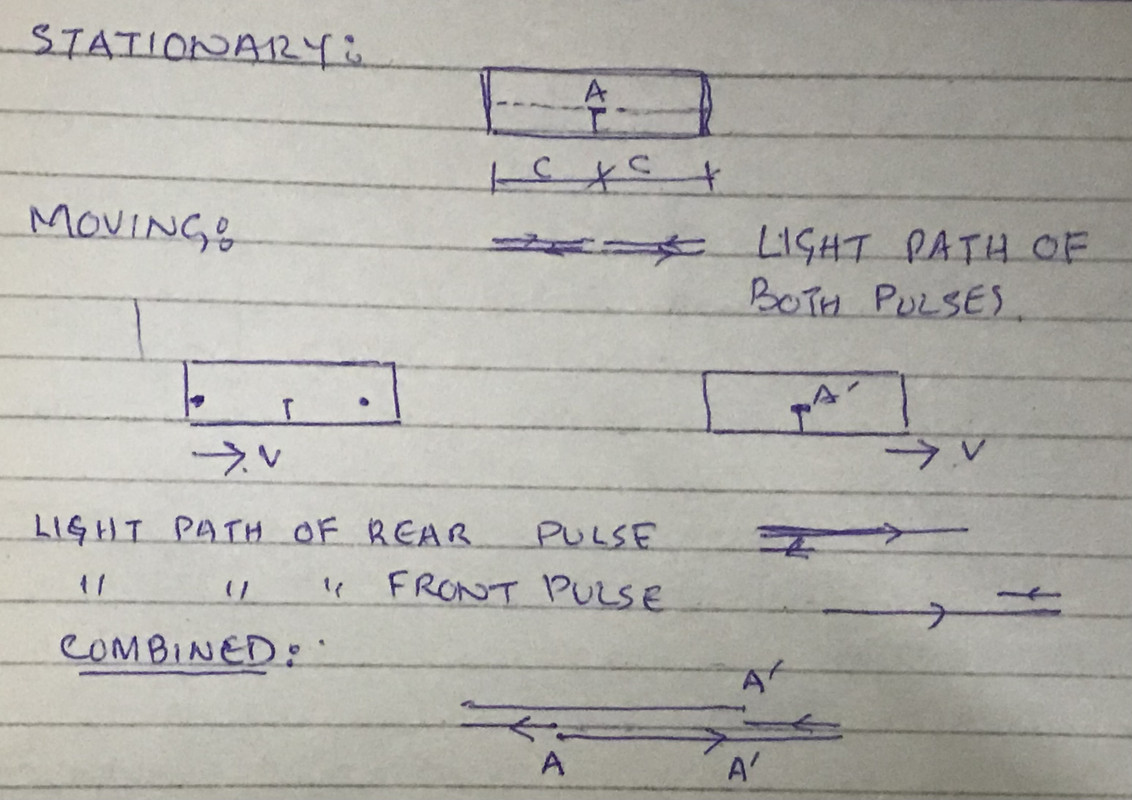 STATIONARY:
A
C C
MOVING:
LIGHT PATH OF
BOTH PULSES.
A′
V V
LIGHT PATH OF REAR PULSE
" " " FRONT PULSE
COMBINED:
A′
A A′